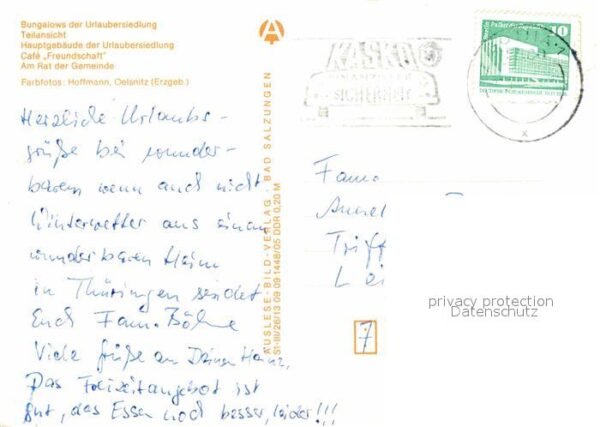 Bungalows der Urlaubersiedlung
Teilansicht
Hauptgebäude der Urlaubersiedlung
Café „Freundschaft"
Am Rat der Gemeinde
Farbfotos: Hoffmann, Oelsnitz (Erzgeb.)
Herzliche Urlaubs-
grüße bei wunder-
barem wenn auch nicht
Winterwetter aus einem
wunderbaren Heim
in Thüringen sendet
Euch Fam. Böhme
Viele Grüße an Deinen Heinz,
Das Freizeitangebot ist
gut, das Essen noch besser, leider!!!
AUSLESE-BILD-VERLAG BAD SALZUNGEN
St-III/26/13 09 09 1448/05 DDR 0,20 M
KASKO
FINANZIELLE
SICHERHEIT
10
Fam.
Triff
Lei
7
privacy protection
Datenschutz